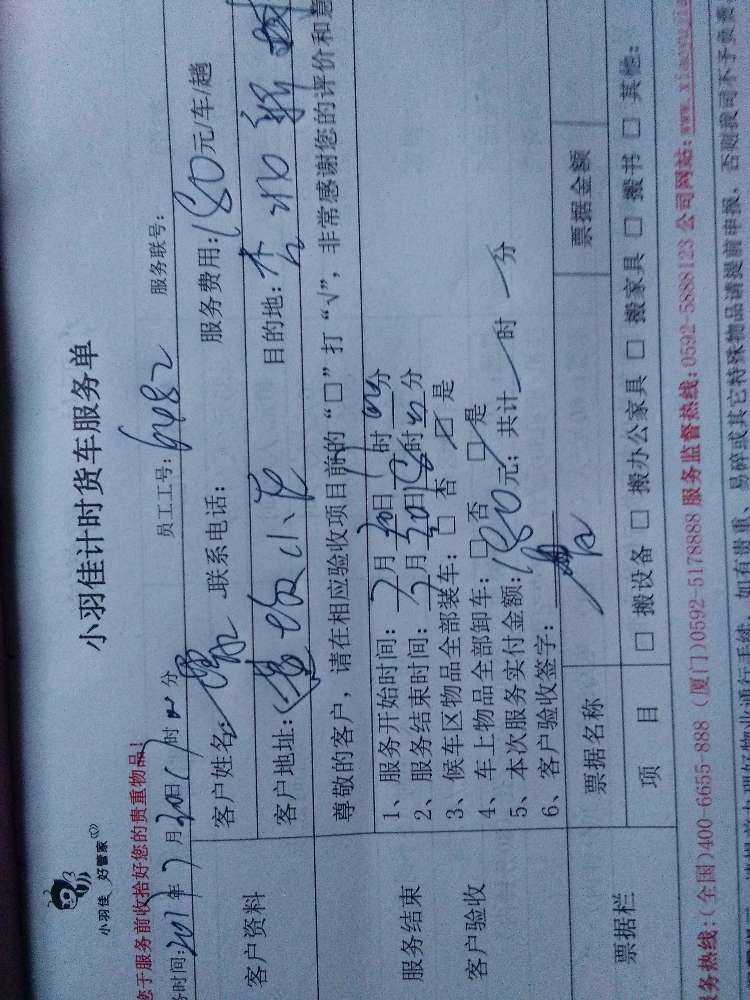 小羽佳 好管家
小羽佳计时货车服务单
您于服务前收拾好您的贵重物品!
务时间:2017年7月30日17时 分 员工工号:6482 服务联号:
客户资料
客户姓名: 联系电话: 服务费用:180元/车/趟
客户地址: 小区 目的地:
尊敬的客户，请在相应验收项目前的“□”打“√”，非常感谢您的评价和意
服务结束
客户验收
1、服务开始时间:7月30日 时 分
2、服务结束时间:7月30日18时 分
3、候车区物品全部装车:□否 □是
4、车上物品全部卸车:□否 □是
5、本次服务实付金额:180元;共计 时 分
6、客户验收签字:
票据栏
票据名称 票据金额
项目 □搬设备 □搬办公家具 □搬家具 □搬书 □其他:
务热线:(全国)400-6655-888 (厦门)0592-5178888 服务监督热线:0592-5888123 公司网站:www.xiao
易碎或其它特殊物品请提前申报，否则我司不予